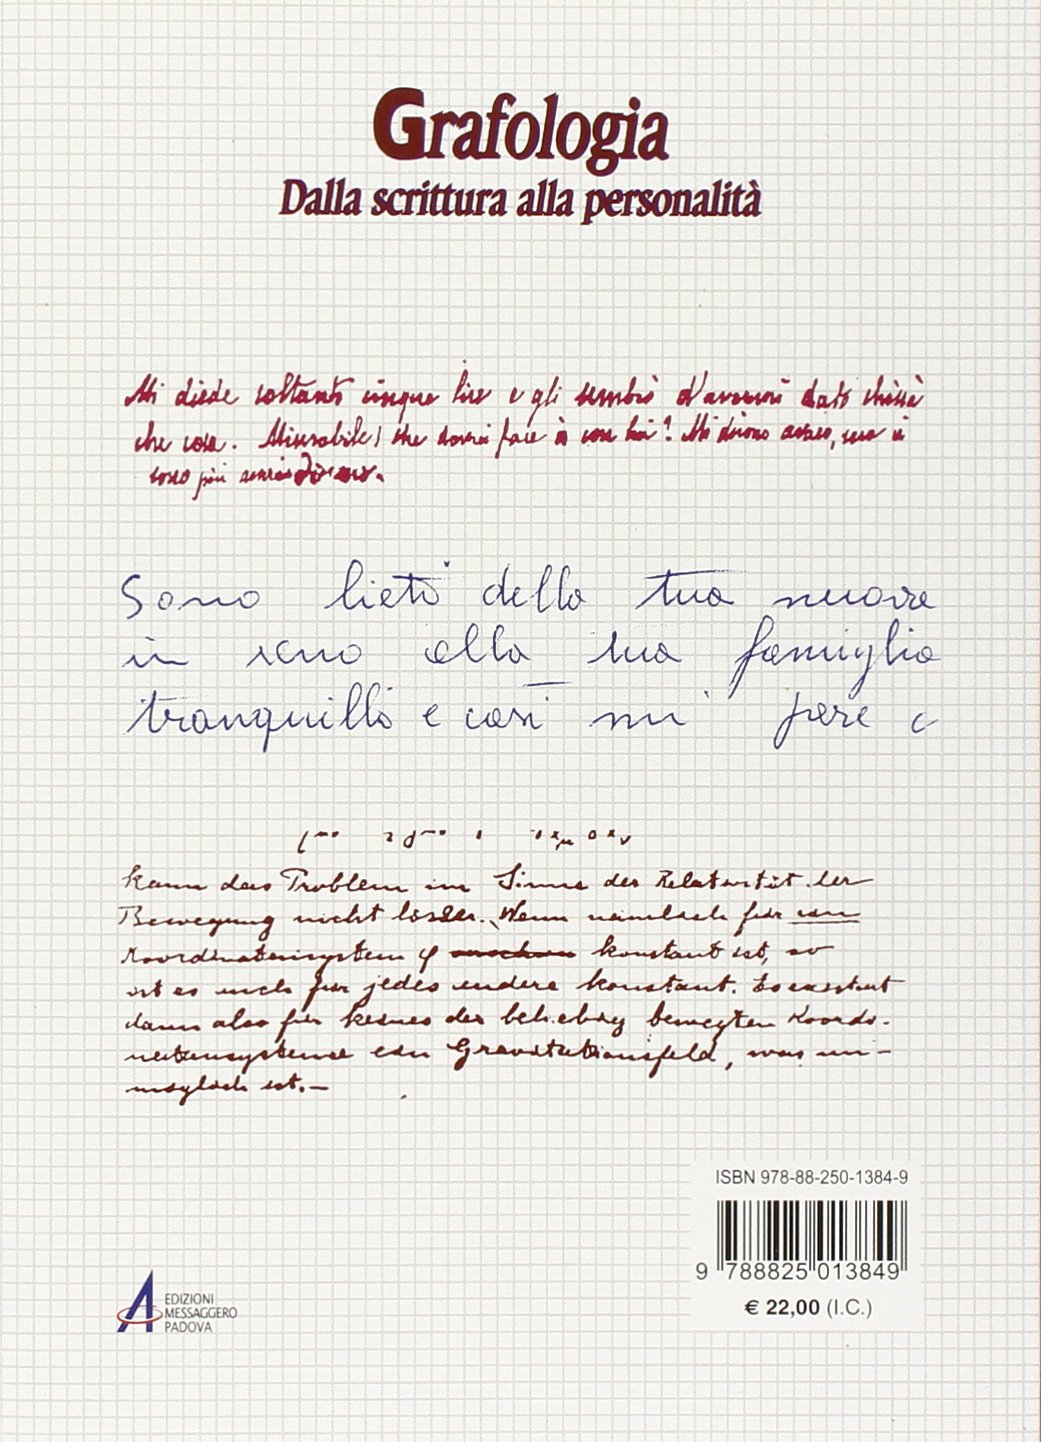 Grafologia
Dalla scrittura alla personalità
Mi diede soltanto cinque lire e gli sembrò d'avermi dato chissà
che cosa. Miserabile! che dovrei fare con lui? Mi dicono
sono più
Sono lieto della tua nuova
in seno alla tua famiglia
tranquillo e così mi pare
kann das Problem im Sinne der Relativität der
Bewegung nicht lösen. Wenn nämlich für ein
Koordinatensystem φ konstant ist, so
ist es auch für jedes andere konstant. Es existiert
dann also für keines der beliebig bewegten Koordi-
natensysteme ein Gravitationsfeld, was un-
möglich ist.—
ISBN 978-88-250-1384-9
9 788825 013849
€ 22,00 (I.C.)
EDIZIONI
MESSAGGERO
PADOVA